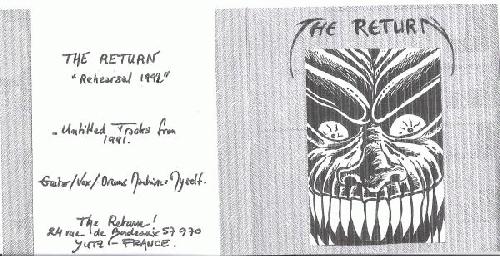 THE RETURN
"Rehearsal 1992"
- Untitled Tracks from
1991.
Guitar/Vox/Drums Machine = Myself.
The Return!
24 rue de Bordeaux 57 970
YUTZ - FRANCE.
THE RETURN